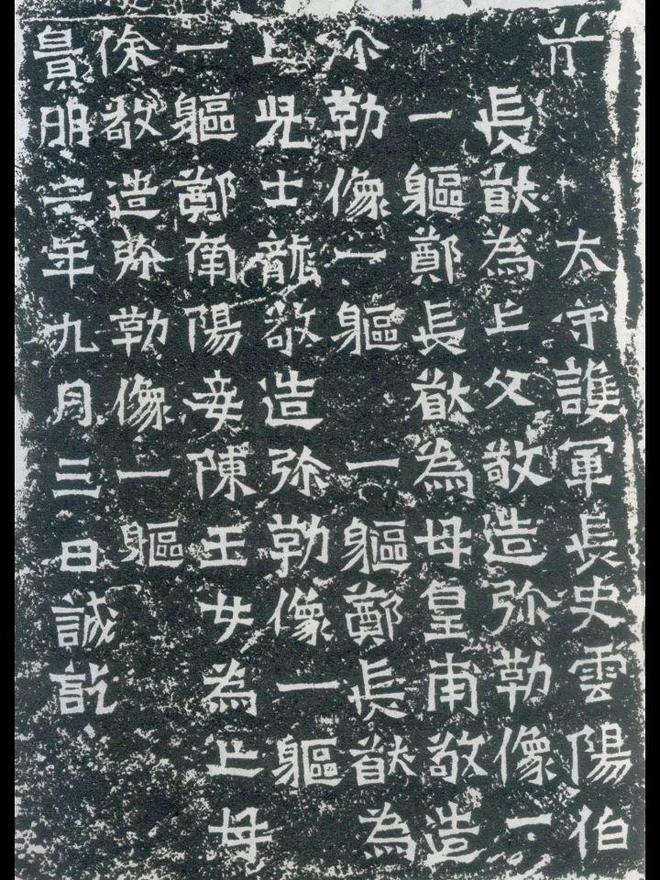 前太守護軍長史雲陽伯
長猷為亡父敬造弥勒像一
一軀鄭長猷為母皇甫敬造
弥勒像一軀一軀鄭長猷為
亡兒士龍敬造弥勒像一軀
一軀鄭南陽妾陳玉女為亡母
徐敬造弥勒像一軀
景明二年九月三日誡訖